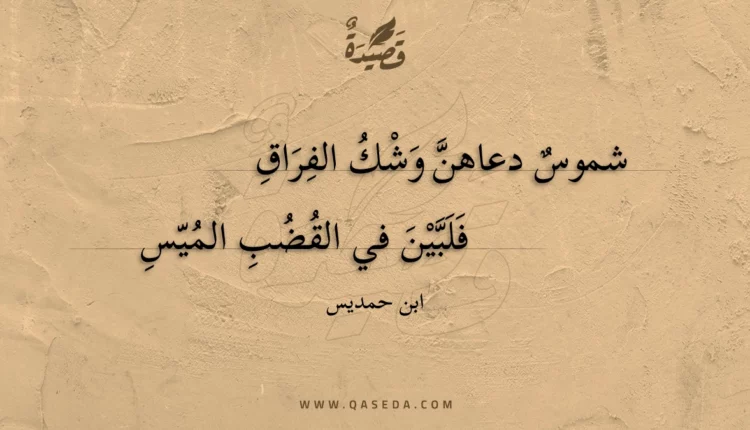 قَصِيدَةٌ
شموسٌ دعاهنَّ وَشْكُ الفِرَاقِ
فَلَبَّيْنَ في القُضُبِ المُيّسِ
ابن حمديس
WWW.QASEDA.COM